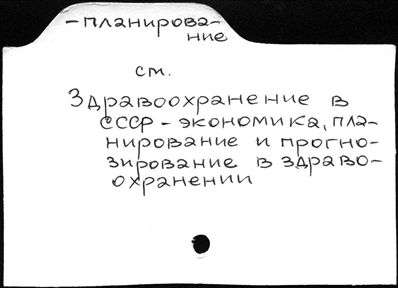 -планирова-
ние
см.
Здравоохранение в
СССР - экономика, пла-
нирование и прогно-
зирование в здраво-
охранении